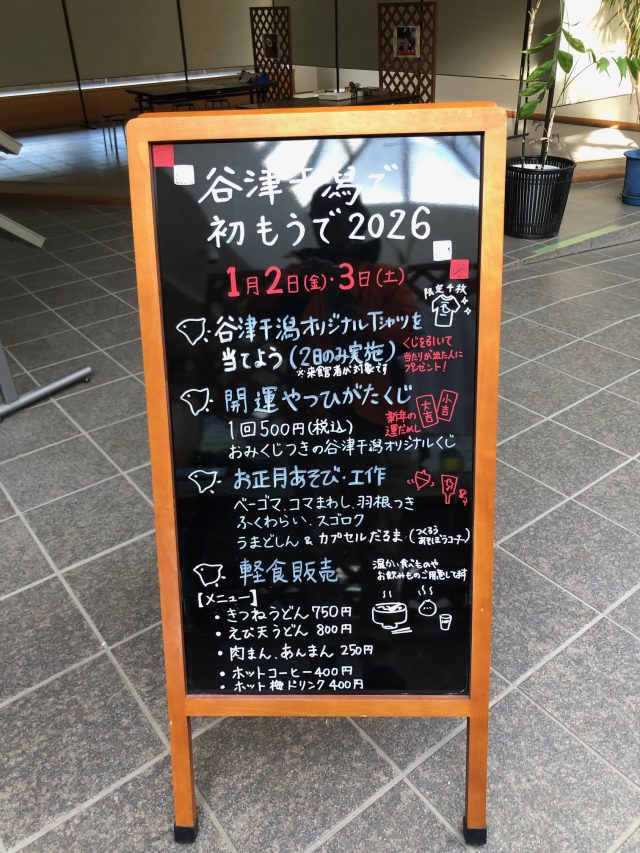 谷津干潟で
初もうで2026
1月2日(金)・3日(土)
限定千枚
谷津干潟オリジナルTシャツを
当てよう(2日のみ実施)
※来館者が対象です
くじを引いて
当たりが出た人に
プレゼント!
開運やつひがたくじ
1回500円(税込)
おみくじつきの谷津干潟オリジナルくじ
新年の
運だめし
大吉
小吉
お正月あそび・工作
ベーゴマ、コマまわし、羽根つき
ふくわらい、スゴロク
うまどしん&カプセルだるま(つくろう
あそぼうコーナー)
軽食販売
温かい食べものや
お飲みものご用意してます
【メニュー】
・きつねうどん750円
・えび天うどん 800円
・肉まん、あんまん 250円
・ホットコーヒー400円
・ホット梅ドリンク400円